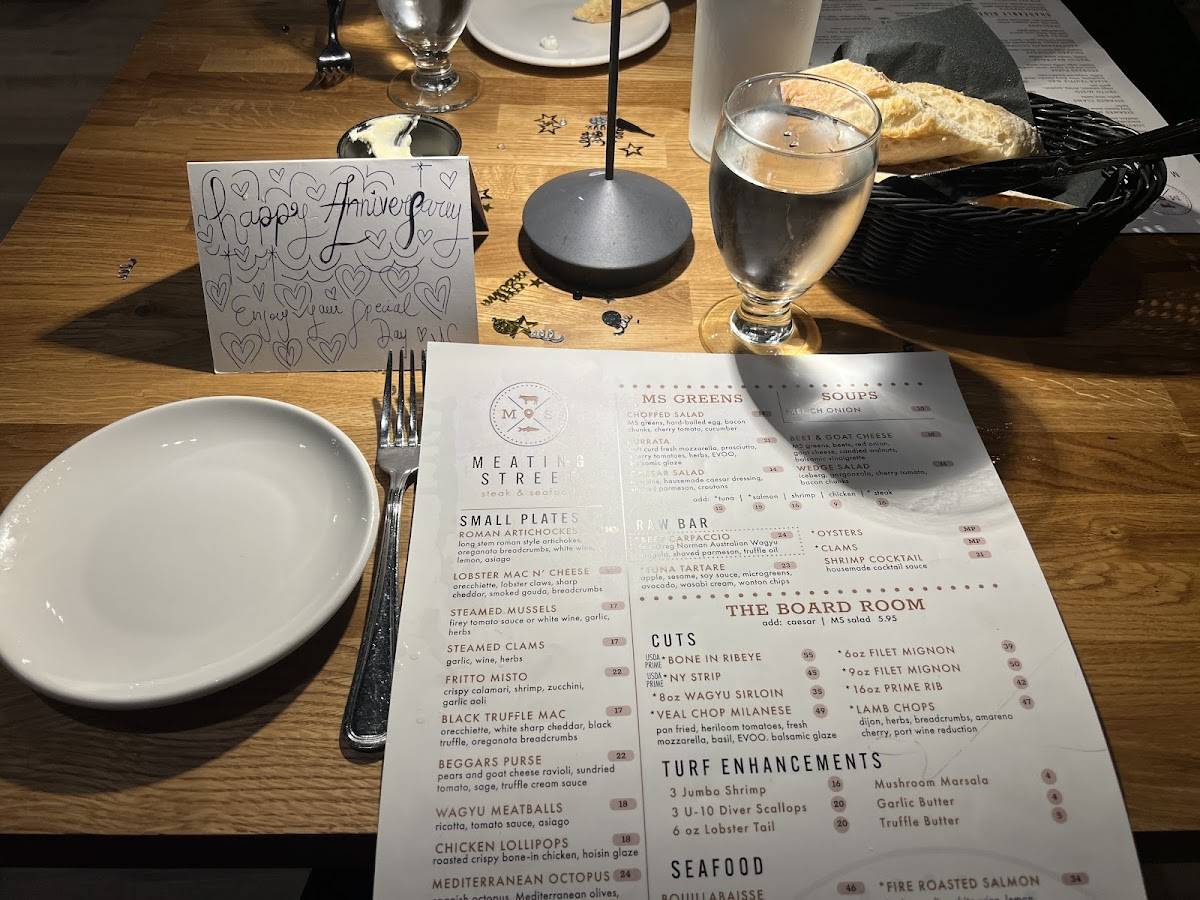 happy Anniversarey
Enjoy your Special
Day
M S
MEATING
STREET
steak & seafood
SMALL PLATES
ROMAN ARTICHOKES
long stem roman style artichokes,
oreganata breadcrumbs, white wine,
lemon, asiago
LOBSTER MAC N' CHEESE
orecchiette, lobster claws, sharp
cheddar, smoked gouda, breadcrumbs
STEAMED MUSSELS 17
firey tomato sauce or white wine, garlic,
herbs
STEAMED CLAMS 17
garlic, wine, herbs
FRITTO MISTO 22
crispy calamari, shrimp, zucchini,
garlic aoli
BLACK TRUFFLE MAC 17
orecchiette, white sharp cheddar, black
truffle, oreganata breadcrumbs
BEGGARS PURSE 22
pears and goat cheese ravioli, sundried
tomato, sage, truffle cream sauce
WAGYU MEATBALLS 18
ricotta, tomato sauce, asiago
CHICKEN LOLLIPOPS 18
roasted crispy bone-in chicken, hoisin glaze
MEDITERRANEAN OCTOPUS 24
spanish octopus, Mediterranean olives,
MS GREENS
CHOPPED SALAD
MS greens, hard-boiled egg, bacon
chunks, cherry tomato, cucumber
BURRATA 21
soft curd fresh mozzarella, prosciutto,
cherry tomatoes, herbs, EVOO,
balsamic glaze
CAESAR SALAD 14
romaine, housemade caesar dressing,
shaved parmesan, croutons
SOUPS
FRENCH ONION
BEET & GOAT CHEESE
MS greens, beets, red onion,
goat cheese, candied walnuts,
balsamic vinaigrette
WEDGE SALAD
iceberg, gorgonzola, cherry tomato,
bacon chunks
add: *tuna | *salmon | shrimp | chicken | * steak
15 16 9 16
RAW BAR
BEEF CARPACCIO 24
Greg Norman Australian Wagyu
arugula, shaved parmesan, truffle oil
*TUNA TARTARE 23
apple, sesame, soy sauce, microgreens,
avocado, wasabi cream, wonton chips
*OYSTERS MP
*CLAMS MP
SHRIMP COCKTAIL 21
housemade cocktail sauce
THE BOARD ROOM
add: caesar | MS salad 5.95
CUTS
USDA PRIME *BONE IN RIBEYE 55
USDA PRIME *NY STRIP 45
*8oz WAGYU SIRLOIN 35
*VEAL CHOP MILANESE 49
pan fried, heriloom tomatoes, fresh
mozzarella, basil, EVOO. balsamic glaze
*6oz FILET MIGNON 39
*9oz FILET MIGNON 50
*16oz PRIME RIB 42
*LAMB CHOPS 47
dijon, herbs, breadcrumbs, amareno
cherry, port wine reduction
TURF ENHANCEMENTS
3 Jumbo Shrimp 16
3 U-10 Diver Scallops 20
6 oz Lobster Tail 20
Mushroom Marsala 4
Garlic Butter 4
Truffle Butter 5
SEAFOOD
BOUILLABAISSE 46
*FIRE ROASTED SALMON 34